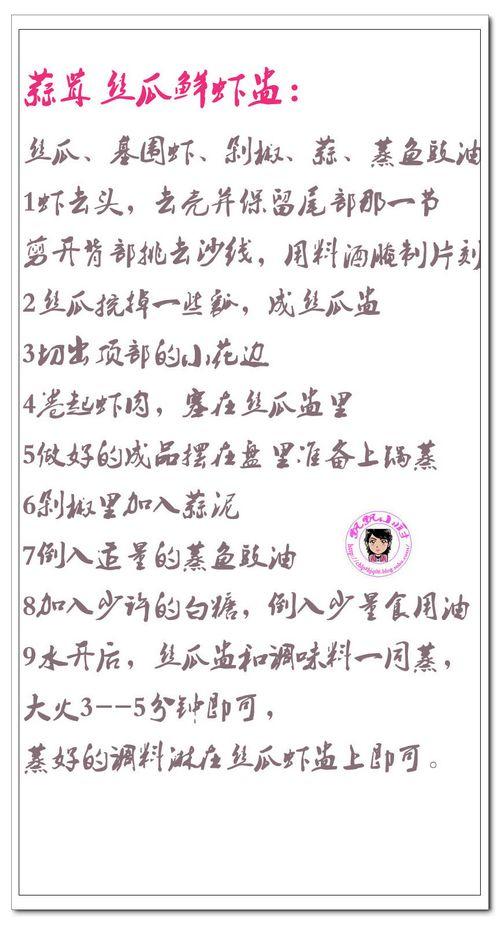 蒜茸丝瓜鲜虾盅：
丝瓜、基围虾、剁椒、蒜、蒸鱼豉油
1虾去头，去壳并保留尾部那一节
剪开背部挑去沙线，用料酒腌制片刻
2丝瓜挖掉一些瓤，成丝瓜盅
3切出顶部的小花边
4卷起虾肉，塞在丝瓜盅里
5做好的成品摆在盘里准备上锅蒸
6剁椒里加入蒜泥
7倒入适量的蒸鱼豉油
8加入少许的白糖，倒入少量食用油
9水开后，丝瓜盅和调味料一同蒸，
大火3--5分钟即可，
蒸好的调料淋在丝瓜虾盅上即可。